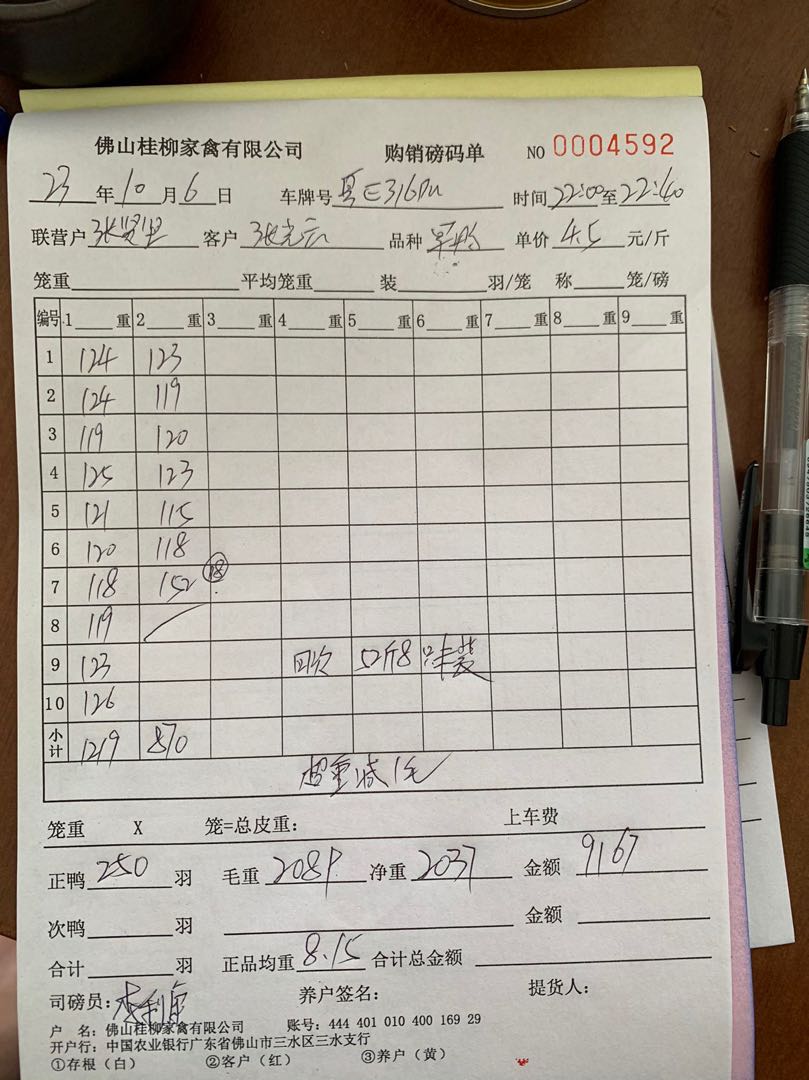 佛山桂柳家禽有限公司 购销磅码单 NO 0004592
23 年 10 月 6 日 车牌号 时间 22:00 至 22:40
联营户 客户 品种 单价 4.5 元/斤
笼重 平均笼重 装 羽/笼 称 笼/磅
编号 1 重 2 重 3 重 4 重 5 重 6 重 7 重 8 重 9 重
1 124 123
2 124 119
3 119 120
4 125 123
5 121 115
6 120 118
7 118 152 18
8 119
9 123
10 126
小计 1219 870
超重减1毛
笼重 X 笼=总皮重: 上车费
正鸭 250 羽 毛重 2089 净重 2037 金额 9167
次鸭 羽 金额
合计 羽 正品均重 8.15 合计总金额
司磅员: 养户签名: 提货人:
户 名: 佛山桂柳家禽有限公司 账号: 444 401 010 400 169 29
开户行: 中国农业银行广东省佛山市三水区三水支行
①存根(白) ②客户(红) ③养户(黄)